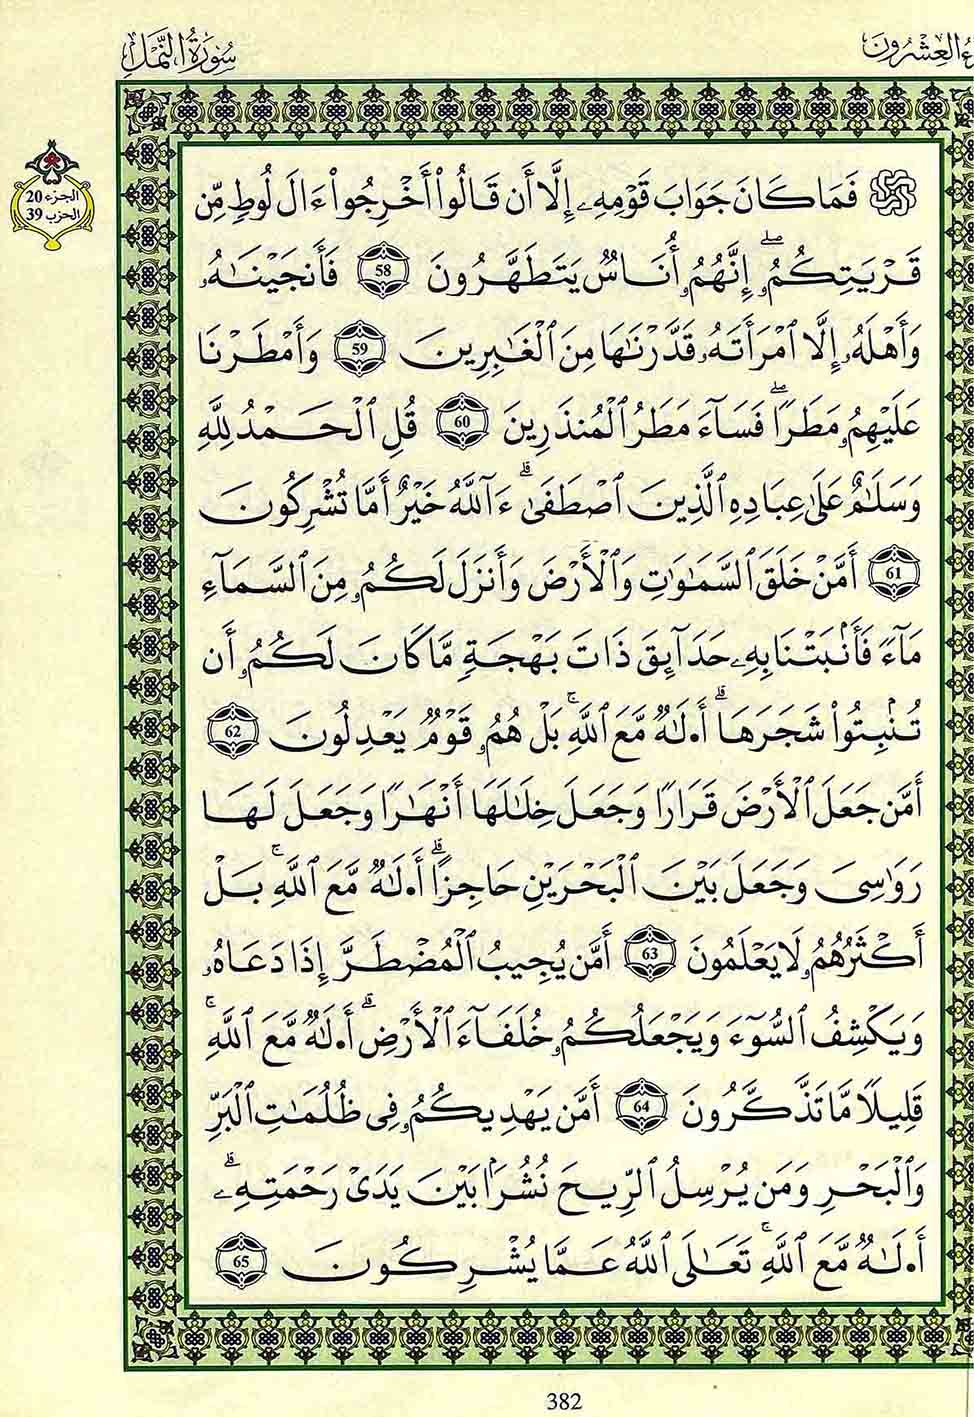 سُورَةُ النَّمْلِ
ءُ العِشْرُونَ
الجزء 20
الحزب 39
۞ فَمَا كَانَ جَوَابَ قَوْمِهِۦ إِلَّا أَن قَالُوٓا۟ أَخْرِجُوٓا۟ ءَالَ لُوطٍ مِّن
قَرْيَتِكُمُۥٓۖ إِنَّهُمُۥٓ أُنَاسٌ يَتَطَهَّرُونَ 58 فَأَنجَيْنَـٰهُۥ
وَأَهْلَهُۥٓ إِلَّا ٱمْرَأَتَهُۥ قَدَّرْنَـٰهَا مِنَ ٱلْغَـٰبِرِينَ 59 وَأَمْطَرْنَا
عَلَيْهِمُۥ مَطَرًاۖ فَسَآءَ مَطَرُ ٱلْمُنذَرِينَ 60 قُلِ ٱلْحَمْدُ لِلَّهِ
وَسَلَـٰمٌ عَلَىٰ عِبَادِهِ ٱلَّذِينَ ٱصْطَفَىٰۗ ءَآللَّهُ خَيْرٌ أَمَّا تُشْرِكُونَ
61 أَمَّنْ خَلَقَ ٱلسَّمَـٰوَٰتِ وَٱلْأَرْضَ وَأَنزَلَ لَكُمُۥ مِنَ ٱلسَّمَآءِ
مَآءً فَأَنۢبَتْنَا بِهِۦ حَدَآئِقَ ذَاتَ بَهْجَةٍ مَّا كَانَ لَكُمُۥٓ أَن
تُنۢبِتُوا۟ شَجَرَهَاۗ أَ.لَـٰهٌ مَّعَ ٱللَّهِۚ بَلْ هُمُۥ قَوْمٌ يَعْدِلُونَ 62
أَمَّن جَعَلَ ٱلْأَرْضَ قَرَارًا وَجَعَلَ خِلَـٰلَهَا أَنْهَـٰرًا وَجَعَلَ لَهَا
رَوَٰسِىَ وَجَعَلَ بَيْنَ ٱلْبَحْرَيْنِ حَاجِزًاۗ أَ.لَـٰهٌ مَّعَ ٱللَّهِۚ بَلْ
أَكْثَرُهُمُۥ لَا يَعْلَمُونَ 63 أَمَّن يُجِيبُ ٱلْمُضْطَرَّ إِذَا دَعَاهُۥ
وَيَكْشِفُ ٱلسُّوٓءَ وَيَجْعَلُكُمُۥ خُلَفَآءَ ٱلْأَرْضِۗ أَ.لَـٰهٌ مَّعَ ٱللَّهِۚ
قَلِيلًا مَّا تَذَّكَّرُونَ 64 أَمَّن يَهْدِيكُمُۥ فِى ظُلُمَـٰتِ ٱلْبَرِّ
وَٱلْبَحْرِ وَمَن يُرْسِلُ ٱلرِّيحَ نُشُرًۢا بَيْنَ يَدَىْ رَحْمَتِهِۦٓۗ
أَ.لَـٰهٌ مَّعَ ٱللَّهِۚ تَعَـٰلَى ٱللَّهُ عَمَّا يُشْرِكُونَ 65
382